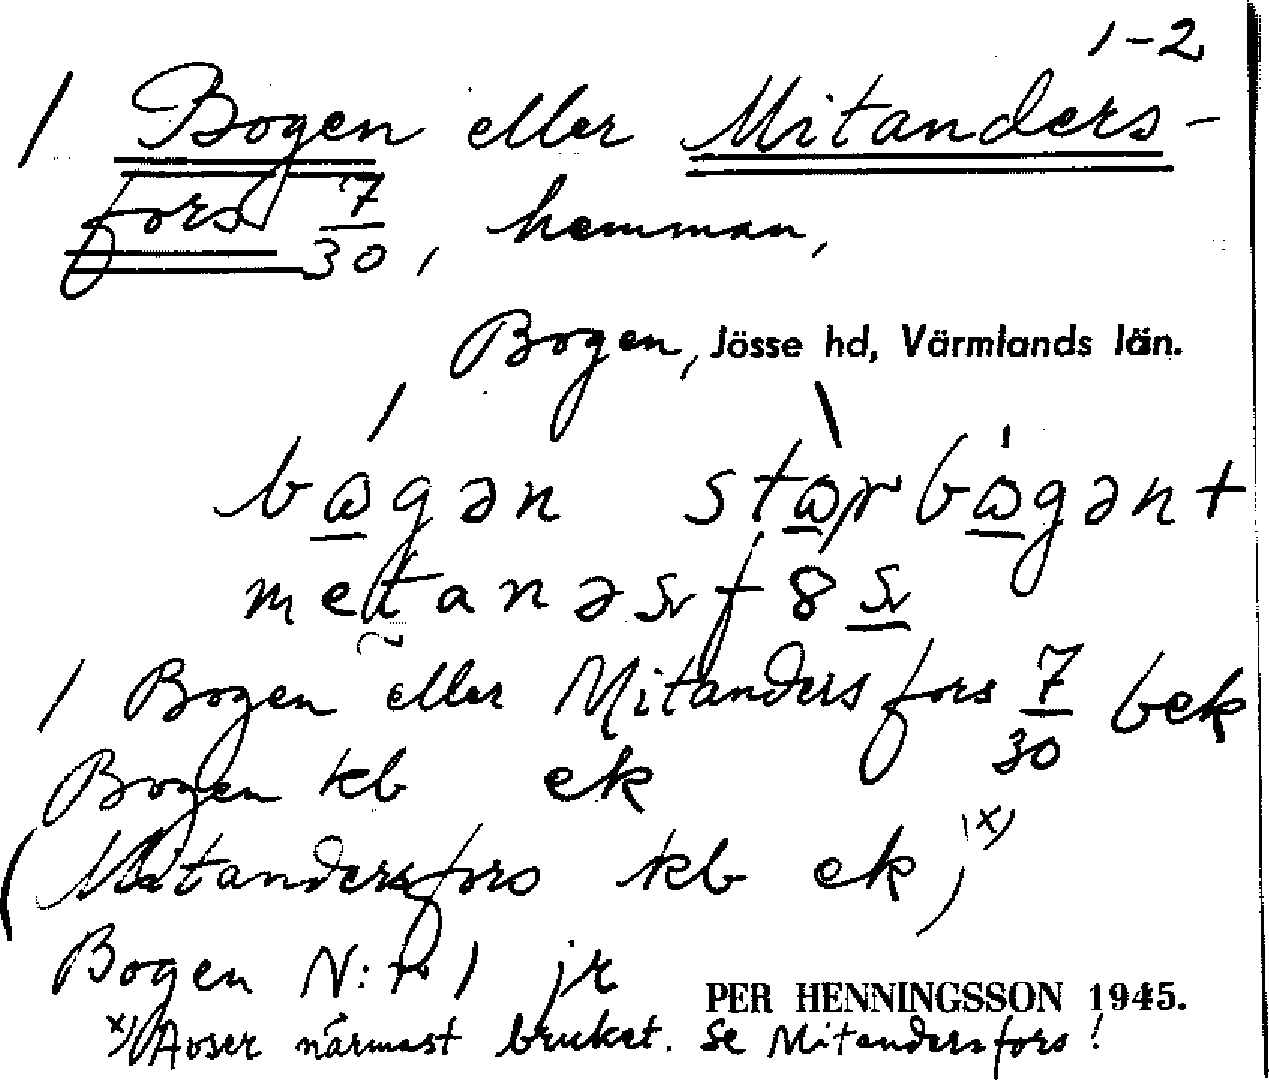 1-2
1 Bogen eller Mitanders-
fors 7/30, hemman,
Bogen, Jösse hd, Värmlands län.
1 Bogen eller Mitandersfors 7/30 bek
Bogen kb ek
(Mitandersfors kb ek)x)
Bogen N:r 1 jr
PER HENNINGSSON 1945.
x) Avser närmast bruket. Se Mitandersfors!